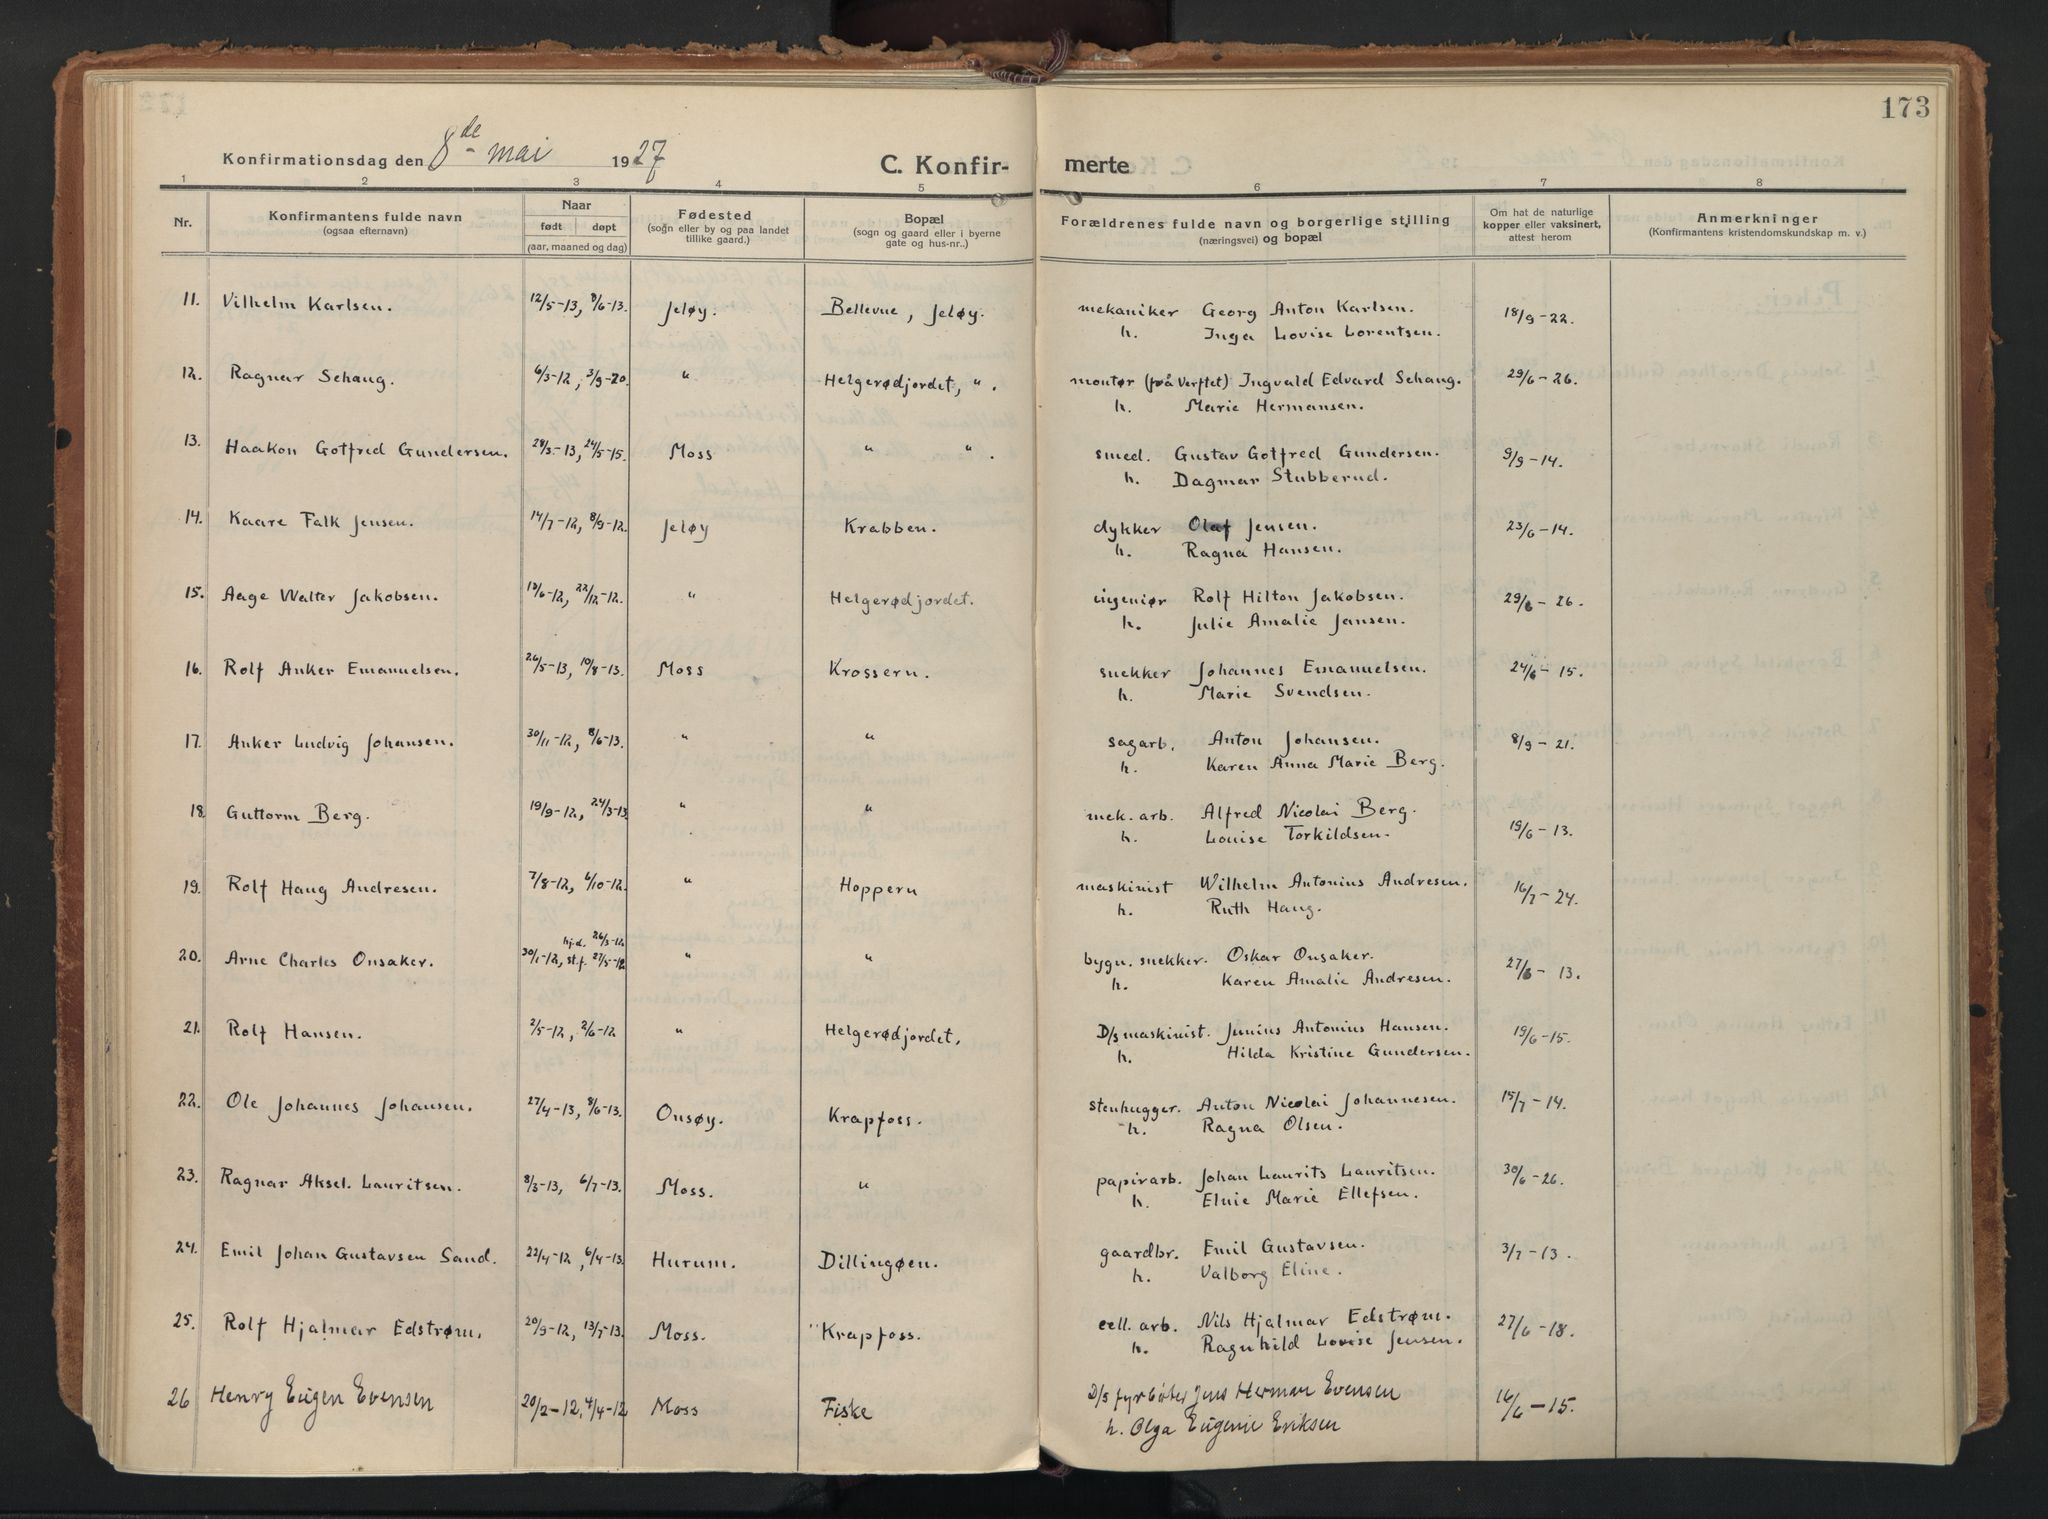 173
Konfirmationsdag den 8de mai 1927 C. Konfir- merte
1 2 3 4 5 6 7 8
Nr. Konfirmantens fulde navn (ogsaa efternavn) Naar født døpt (aar, maaned og dag) Fødested (sogn eller by og paa landet tillike gaard.) Bopæl (sogn og gaard eller i byerne gate og hus-nr..) Forældrenes fulde navn og borgerlige stilling (næringsvei) og bopæl Om hat de naturlige kopper eller vaksinert, attest herom Anmerkninger (Konfirmantens kristendomskundskap m. v.)
11. Vilhelm Karlsen. 12/5-13, 8/6-13. Jeløy. Bellevue, Jeløy. mekaniker Georg Anton Karlsen. 18/9-22.
h. Inga Lovise Lorentsen.
12. Ragnar Sehaug. 6/3-12, 3/9-20. " Helgerødjordet, ". montør (på Verftet) Ingvald Edvard Sehaug. 29/6-26.
h. Marie Hermansen.
13. Haakon Gotfred Gundersen. 28/3-13, 24/5-15. Moss " ". smed. Gustav Gotfred Gundersen. 9/9-14.
h. Dagmar Stubberud.
14. Kaare Falk Jensen. 14/7-12, 8/9-12. Jeløy Krabben. dykker Olaf Jensen. 23/6-14.
h. Ragna Hansen.
15. Aage Walter Jakobsen. 13/6-12, 22/12-12. " Helgerødjordet. ingeniør Rolf Hilton Jakobsen. 29/6-26.
h. Julie Amalie Jansen.
16. Rolf Anker Emanuelsen. 26/5-13, 10/8-13. Moss Krossern. snekker Johannes Emanuelsen. 24/6-15.
h. Marie Svendsen.
17. Anker Ludvig Johansen. 30/11-12, 8/6-13. " " sagarb. Anton Johansen. 8/9-21.
h. Karen Anna Marie Berg.
18 Guttorm Berg. 19/9-12, 24/3-13. " " mek. arb. Alfred Nicolai Berg. 19/6-13.
h. Louise Torkildsen.
19. Rolf Haug Andresen. 7/8-12, 6/10-12. " Hoppern maskinist Wilhelm Antonius Andresen. 16/7-24.
h. Ruth Haug.
20. Arne Charles Onsaker. 30/1-12, hj.d. 26/3-12 st.f. 27/5-12 " " bygn. snekker. Oskar Onsaker. 27/6-13.
h. Karen Amalie Andresen.
21. Rolf Hansen. 2/5-12, 2/6-12 " Helgerødjordet, D/s maskinist. Junius Antonius Hansen. 19/6-15.
h. Hilda Kristine Gundersen.
22. Ole Johannes Johansen. 27/4-13, 8/6-13. Onsøy. Krapfoss. stenhugger. Anton Nicolai Johannesen. 15/7-14.
h. Ragna Olsen.
23. Ragnar Aksel. Lauritsen. 8/3-13, 6/7-13. Moss. " papirarb. Johan Laurits Lauritsen. 30/6-26.
h. Elnie Marie Ellefsen.
24. Emil Johan Gustavsen Sand. 22/4-12, 6/4-13. Hurum. Dillingøen. gaardbr. Emil Gustavsen. 3/7-13.
h. Valborg Eline.
25. Rolf Hjalmar Edstrøm. 20/9-12, 13/7-13. Moss. Krapfoss. cell. arb. Nils Hjalmar Edstrøm. 27/6-18.
h. Ragnhild Lovise Jensen.
26 Henry Eugen Evensen 20/2-12, 4/4-12 Moss Fiske D/s fyrbøter Jens Herman Evensen 16/6-15.
h. Olga Eugenie Eriksen